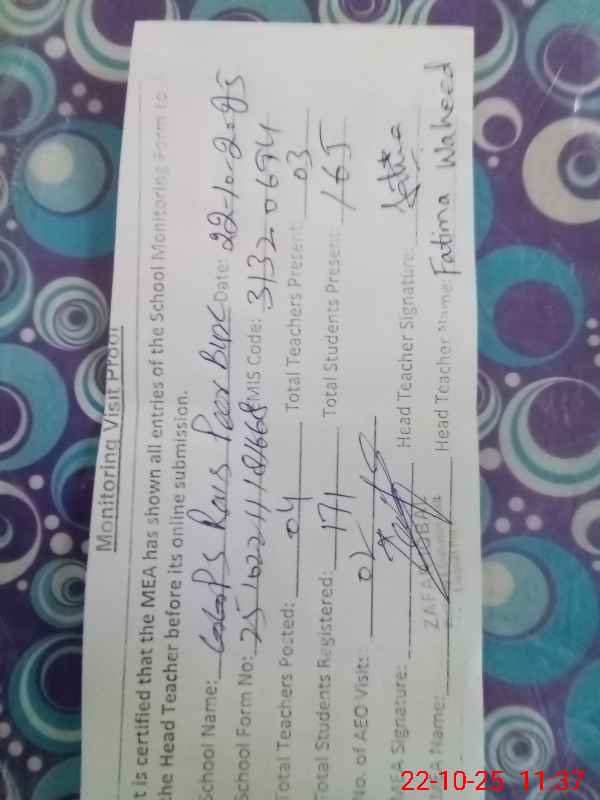 Monitoring Visit Proof
t is certified that the MEA has shown all entries of the School Monitoring Form to
the Head Teacher before its online submission.
School Name: GGPS Rais Poor Bux Date: 22-10-2025
School Form No: EMIS Code: 31320694
Total Teachers Posted: 04 Total Teachers Present: 03
Total Students Registered: 171 Total Students Present: 165
No. of AEO Visits: 02
MEA Signature: Head Teacher Signature:
A Name: ZAFAR IQBAL Head Teacher Name: Fatima Waheed
22-10-25 11:37